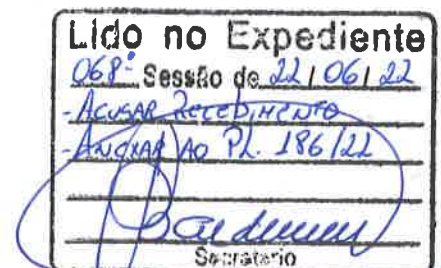 Lido no Expediente
068ª Sessão de 22/06/22
- ACUSAR RECEBIMENTO
- ANEXAR AO PL. 186/22
Secretário